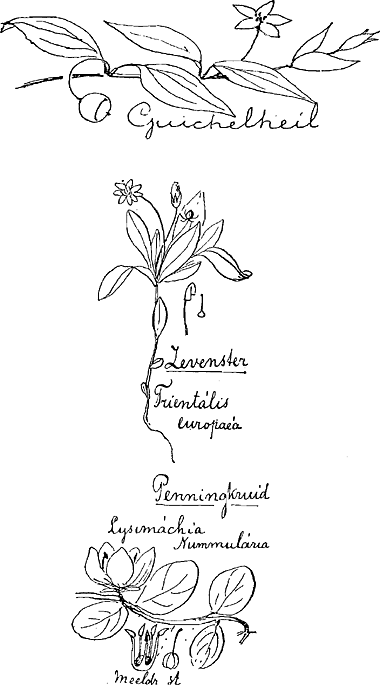 Guichelheil
Zevenster
Trientális
europaéa
Penningkruid
Lysimáchia
Nummulária
Meeldr st